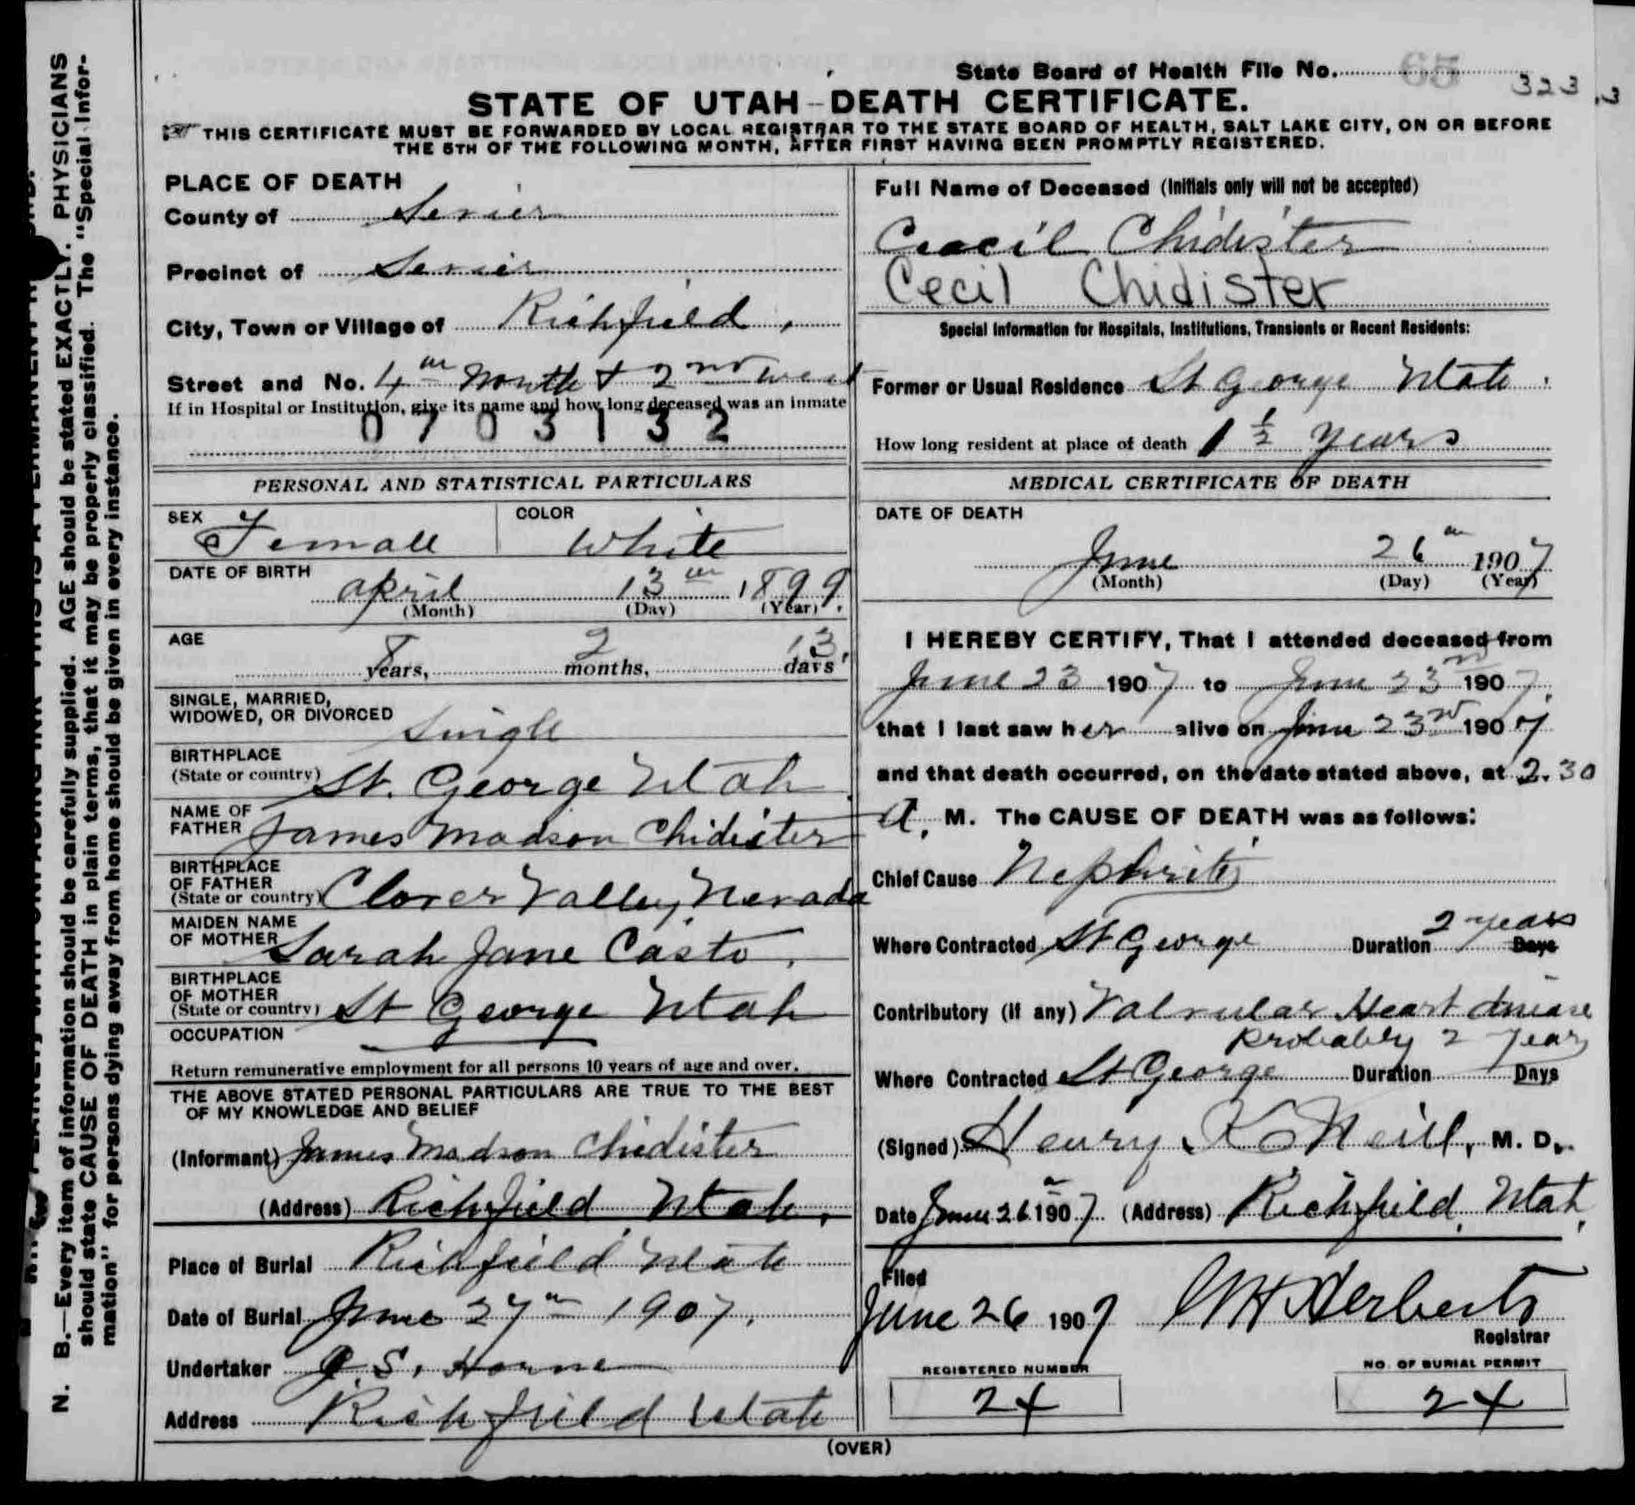 State Board of Health File No. 65 323
STATE OF UTAH-DEATH CERTIFICATE.
THIS CERTIFICATE MUST BE FORWARDED BY LOCAL REGISTRAR TO THE STATE BOARD OF HEALTH, SALT LAKE CITY, ON OR BEFORE
THE 5TH OF THE FOLLOWING MONTH, AFTER FIRST HAVING BEEN PROMPTLY REGISTERED.
PLACE OF DEATH
County of Sevier
Precinct of Sevier
City, Town or Village of Richfield,
Street and No. 4th North & 2nd west
If in Hospital or Institution, give its name and how long deceased was an inmate
0703132
PERSONAL AND STATISTICAL PARTICULARS
SEX Female COLOR White
DATE OF BIRTH April 13th 1899.
(Month) (Day) (Year)
AGE 8 years, 2 months, 13 days
SINGLE, MARRIED,
WIDOWED, OR DIVORCED Single
BIRTHPLACE
(State or country) St. George Utah
NAME OF
FATHER James Madson Chidister
BIRTHPLACE
OF FATHER
(State or country) Clover Valley, Nevada
MAIDEN NAME
OF MOTHER Sarah Jane Casto.
BIRTHPLACE
OF MOTHER
(State or country) St George Utah
OCCUPATION
Return remunerative employment for all persons 10 years of age and over.
THE ABOVE STATED PERSONAL PARTICULARS ARE TRUE TO THE BEST
OF MY KNOWLEDGE AND BELIEF
(Informant) James Madson Chidister
(Address) Richfield Utah.
Place of Burial Richfield Utah
Date of Burial June 27th 1907.
Undertaker J. S. Horne
Address Richfield Utah
Full Name of Deceased (Initials only will not be accepted)
Ceacil Chidister
Cecil Chidister
Special Information for Hospitals, Institutions, Transients or Recent Residents:
Former or Usual Residence St George Utah.
How long resident at place of death 1 1/2 years
MEDICAL CERTIFICATE OF DEATH
DATE OF DEATH
June 26th 1907
(Month) (Day) (Year)
I HEREBY CERTIFY, That I attended deceased from
June 23 1907 to June 23rd 1907.
that I last saw her alive on June 23rd 1907
and that death occurred, on the date stated above, at 2.30
A. M. The CAUSE OF DEATH was as follows:
Chief Cause Nephritis
Where Contracted St George Duration 2 years Days
Contributory (if any) Valvular Heart disease
Probably 2 years
Where Contracted St George Duration Days
(Signed) Henry K Neill, M. D.
Date June 26 1907. (Address) Richfield, Utah,
Filed
June 26 1907 Herberts
Registrar
REGISTERED NUMBER
24
NO. OF BURIAL PERMIT
24
(OVER)
N. B.—Every item of information should be carefully supplied. AGE should be stated EXACTLY. PHYSICIANS
should state CAUSE OF DEATH in plain terms, that it may be properly classified. The "Special Infor-
mation" for persons dying away from home should be given in every instance.